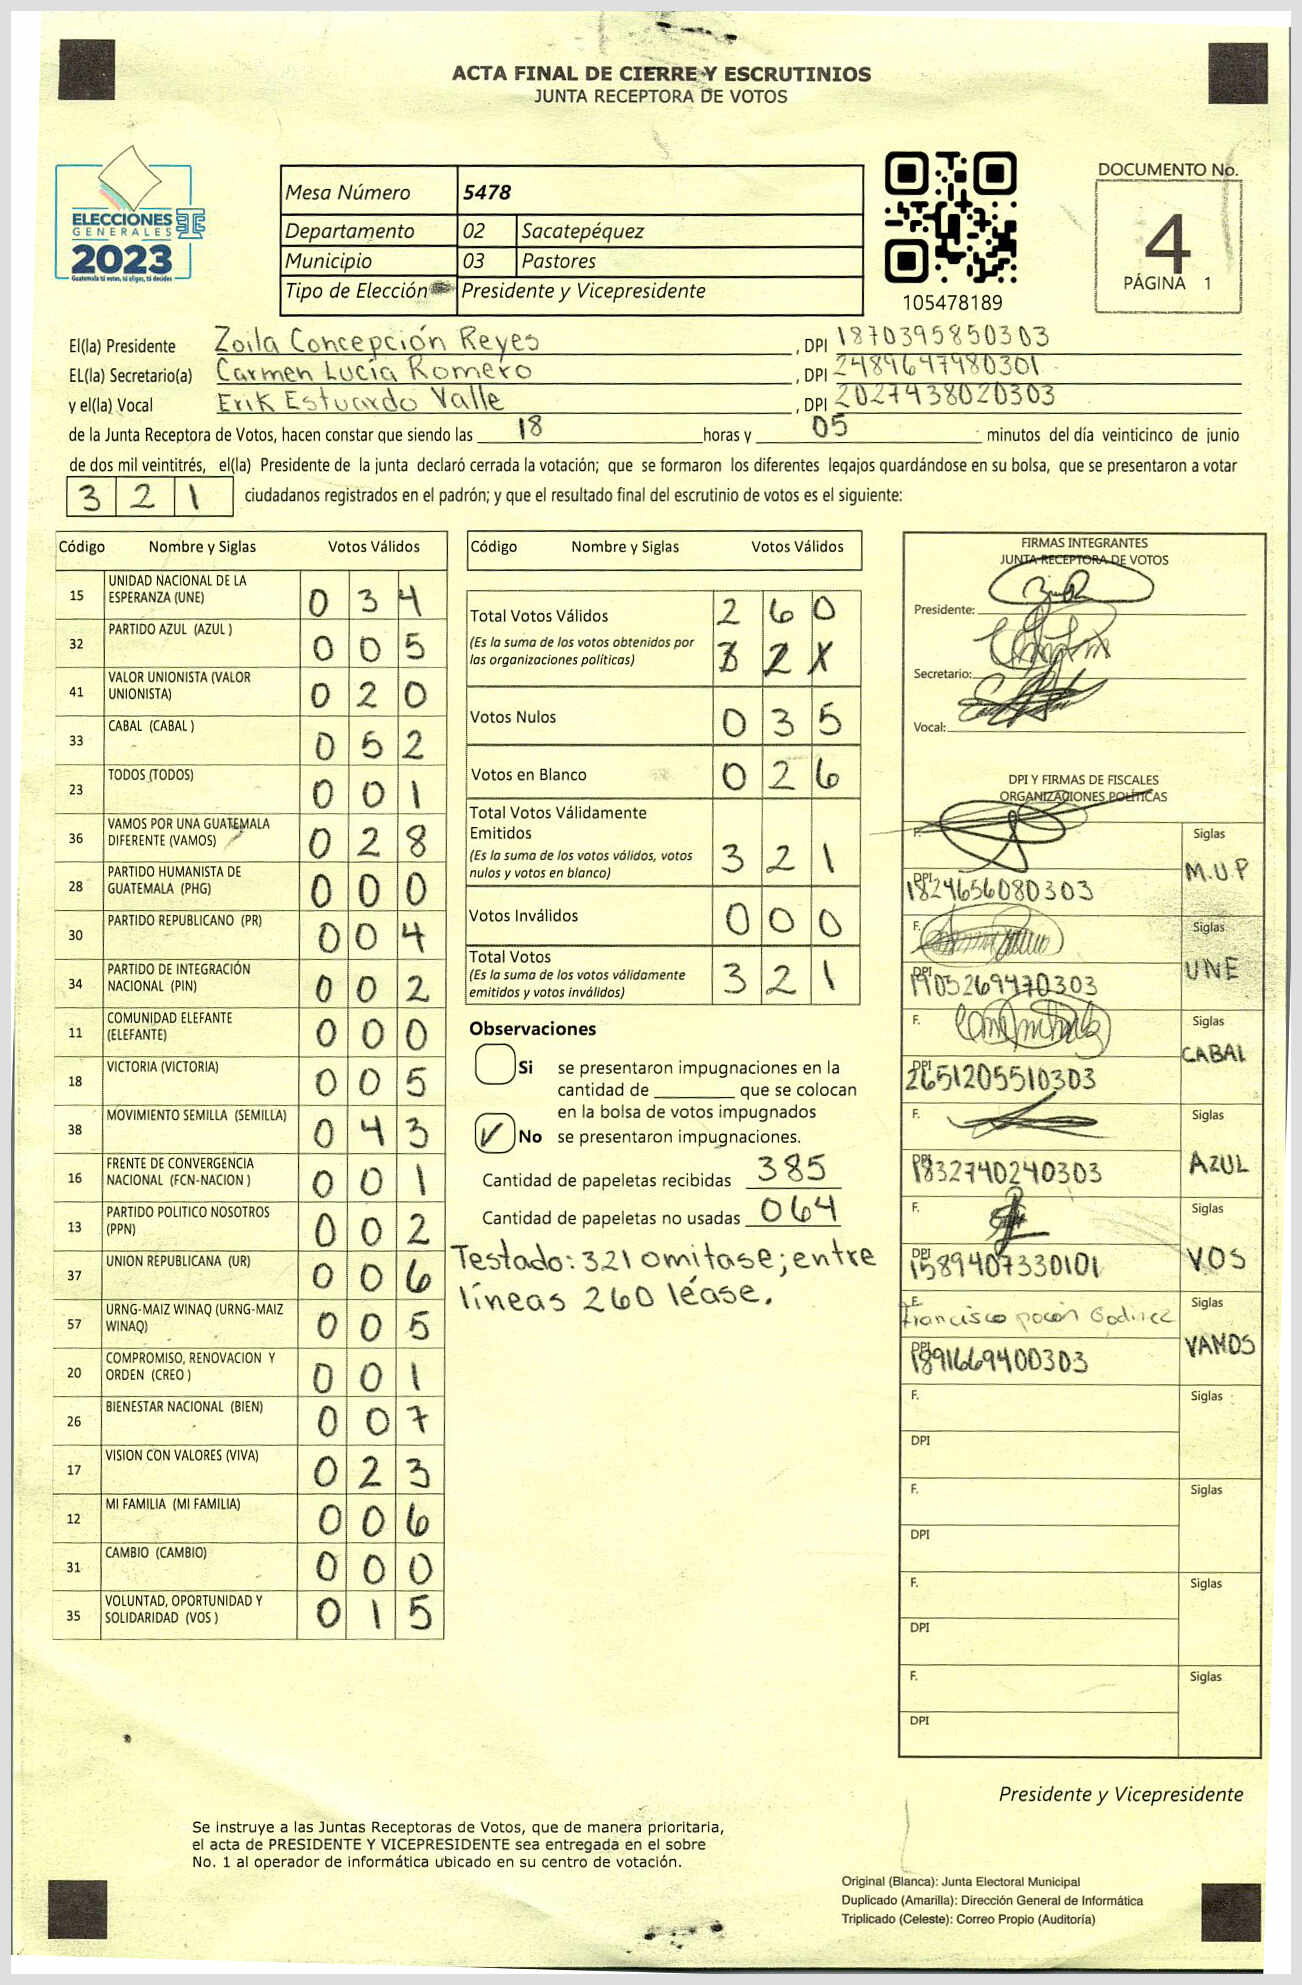 ACTA FINAL DE CIERRE Y ESCRUTINIOS
JUNTA RECEPTORA DE VOTOS
ELECCIONES
GENERALES
2023
Guatemala tú votas, tú eliges, tú decides
Mesa Número 5478
Departamento 02 Sacatepéquez
Municipio 03 Pastores
Tipo de Elección Presidente y Vicepresidente
105478189
DOCUMENTO No.
4
PÁGINA 1
El(la) Presidente Zoila Concepción Reyes, DPI 1870395850303
EL(la) Secretario(a) Carmen Lucía Romero, DPI 2489647980301
y el(la) Vocal Erik Estuardo Valle, DPI 2027438020303
de la Junta Receptora de Votos, hacen constar que siendo las 18 horas y 05 minutos del día veinticinco de junio
de dos mil veintitrés, el(la) Presidente de la junta declaró cerrada la votación; que se formaron los diferentes legajos guardándose en su bolsa, que se presentaron a votar
321 ciudadanos registrados en el padrón; y que el resultado final del escrutinio de votos es el siguiente:
Código Nombre y Siglas Votos Válidos
15 UNIDAD NACIONAL DE LA
ESPERANZA (UNE) 034
32 PARTIDO AZUL (AZUL ) 005
41 VALOR UNIONISTA (VALOR
UNIONISTA) 020
33 CABAL (CABAL ) 052
23 TODOS (TODOS) 001
36 VAMOS POR UNA GUATEMALA
DIFERENTE (VAMOS) 028
28 PARTIDO HUMANISTA DE
GUATEMALA (PHG) 000
30 PARTIDO REPUBLICANO (PR) 004
34 PARTIDO DE INTEGRACIÓN
NACIONAL (PIN) 002
11 COMUNIDAD ELEFANTE
(ELEFANTE) 000
18 VICTORIA (VICTORIA) 005
38 MOVIMIENTO SEMILLA (SEMILLA) 043
16 FRENTE DE CONVERGENCIA
NACIONAL (FCN-NACION ) 001
13 PARTIDO POLITICO NOSOTROS
(PPN) 002
37 UNION REPUBLICANA (UR) 006
57 URNG-MAIZ WINAQ (URNG-MAIZ
WINAQ) 005
20 COMPROMISO, RENOVACION Y
ORDEN (CREO ) 001
26 BIENESTAR NACIONAL (BIEN) 007
17 VISION CON VALORES (VIVA) 023
12 MI FAMILIA (MI FAMILIA) 006
31 CAMBIO (CAMBIO) 000
35 VOLUNTAD, OPORTUNIDAD Y
SOLIDARIDAD (VOS ) 015
Código Nombre y Siglas Votos Válidos
Total Votos Válidos 260
(Es la suma de los votos obtenidos por
las organizaciones políticas) 321
Votos Nulos 035
Votos en Blanco 026
Total Votos Válidamente
Emitidos
(Es la suma de los votos válidos, votos
nulos y votos en blanco) 321
Votos Inválidos 000
Total Votos
(Es la suma de los votos válidamente
emitidos y votos inválidos) 321
Observaciones
Si se presentaron impugnaciones en la
cantidad de ________ que se colocan
en la bolsa de votos impugnados
✓ No se presentaron impugnaciones.
Cantidad de papeletas recibidas 385
Cantidad de papeletas no usadas 064
Testado: 321 omitase; entre
líneas 260 léase.
FIRMAS INTEGRANTES
JUNTA RECEPTORA DE VOTOS
Presidente:
Secretario:
Vocal:
DPI Y FIRMAS DE FISCALES
ORGANIZACIONES POLÍTICAS
F. Siglas
DPI 1824656080303 M.U.P
F. Siglas
DPI 1905269470303 UNE
F. Siglas
DPI 2651205510303 CABAL
F. Siglas
DPI 1832740240303 AZUL
F. Siglas
DPI 1589407330101 VOS
F. Francisco pocón Godinez Siglas
DPI 1891669400303 VAMOS
F. Siglas
DPI
F. Siglas
DPI
F. Siglas
DPI
F. Siglas
DPI
Presidente y Vicepresidente
Se instruye a las Juntas Receptoras de Votos, que de manera prioritaria,
el acta de PRESIDENTE Y VICEPRESIDENTE sea entregada en el sobre
No. 1 al operador de informática ubicado en su centro de votación.
Original (Blanca): Junta Electoral Municipal
Duplicado (Amarilla): Dirección General de Informática
Triplicado (Celeste): Correo Propio (Auditoría)